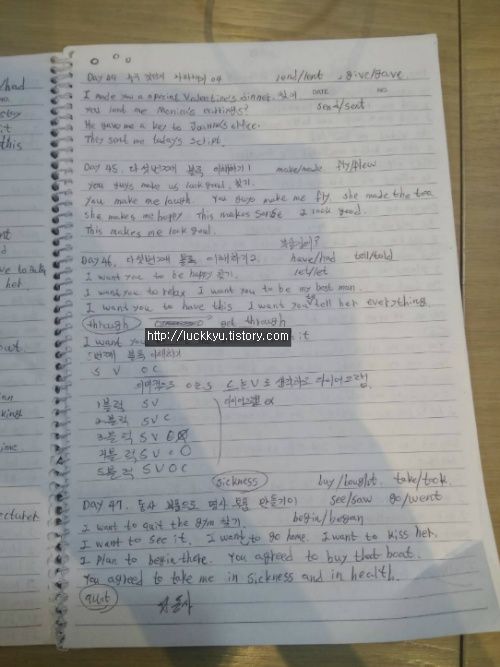 had
this
her.
out.
king
DAY 44 04 lend/lent , give/gave.
DATE NO.
I made you a special Valentine's dinner. 찾기 send/sent
You lent me Monica's earrings?
He gave me a key to Joanna's office.
They sent me today's script.
Day 45. 다섯번째 블록 이해하기 1 make/made fly/flew
You guys make us look good. 찾기
You make me laugh. You guys make me fly. she made the tea
she makes me happy This makes sense I look good.
This makes me look good.
Day 46. 다섯번째 블록 이해하기 2. have/had tell/told
I want you to be happy 찾기. let/let
I want you to relax I want you to be my best man.
I want you to have this I want you to tell her everything.
through got through
http://luckkyu.tistory.com
I want you it
5번째 블록 이해하기
S V O C
1블럭 S V
2블럭 S V C
3블럭 S V
4블럭 S V O O
5블럭 S V O C
sickness buy/bought. take/took
Day 47. 동사 명사 만들기 see/saw go/went
I want to quit the gym 찾기. begin/began
I want to see it. I want to go home. I want to kiss her.
I plan to begin there. You agreed to buy that boat.
You agreed to take me in sickness and in health.
quit